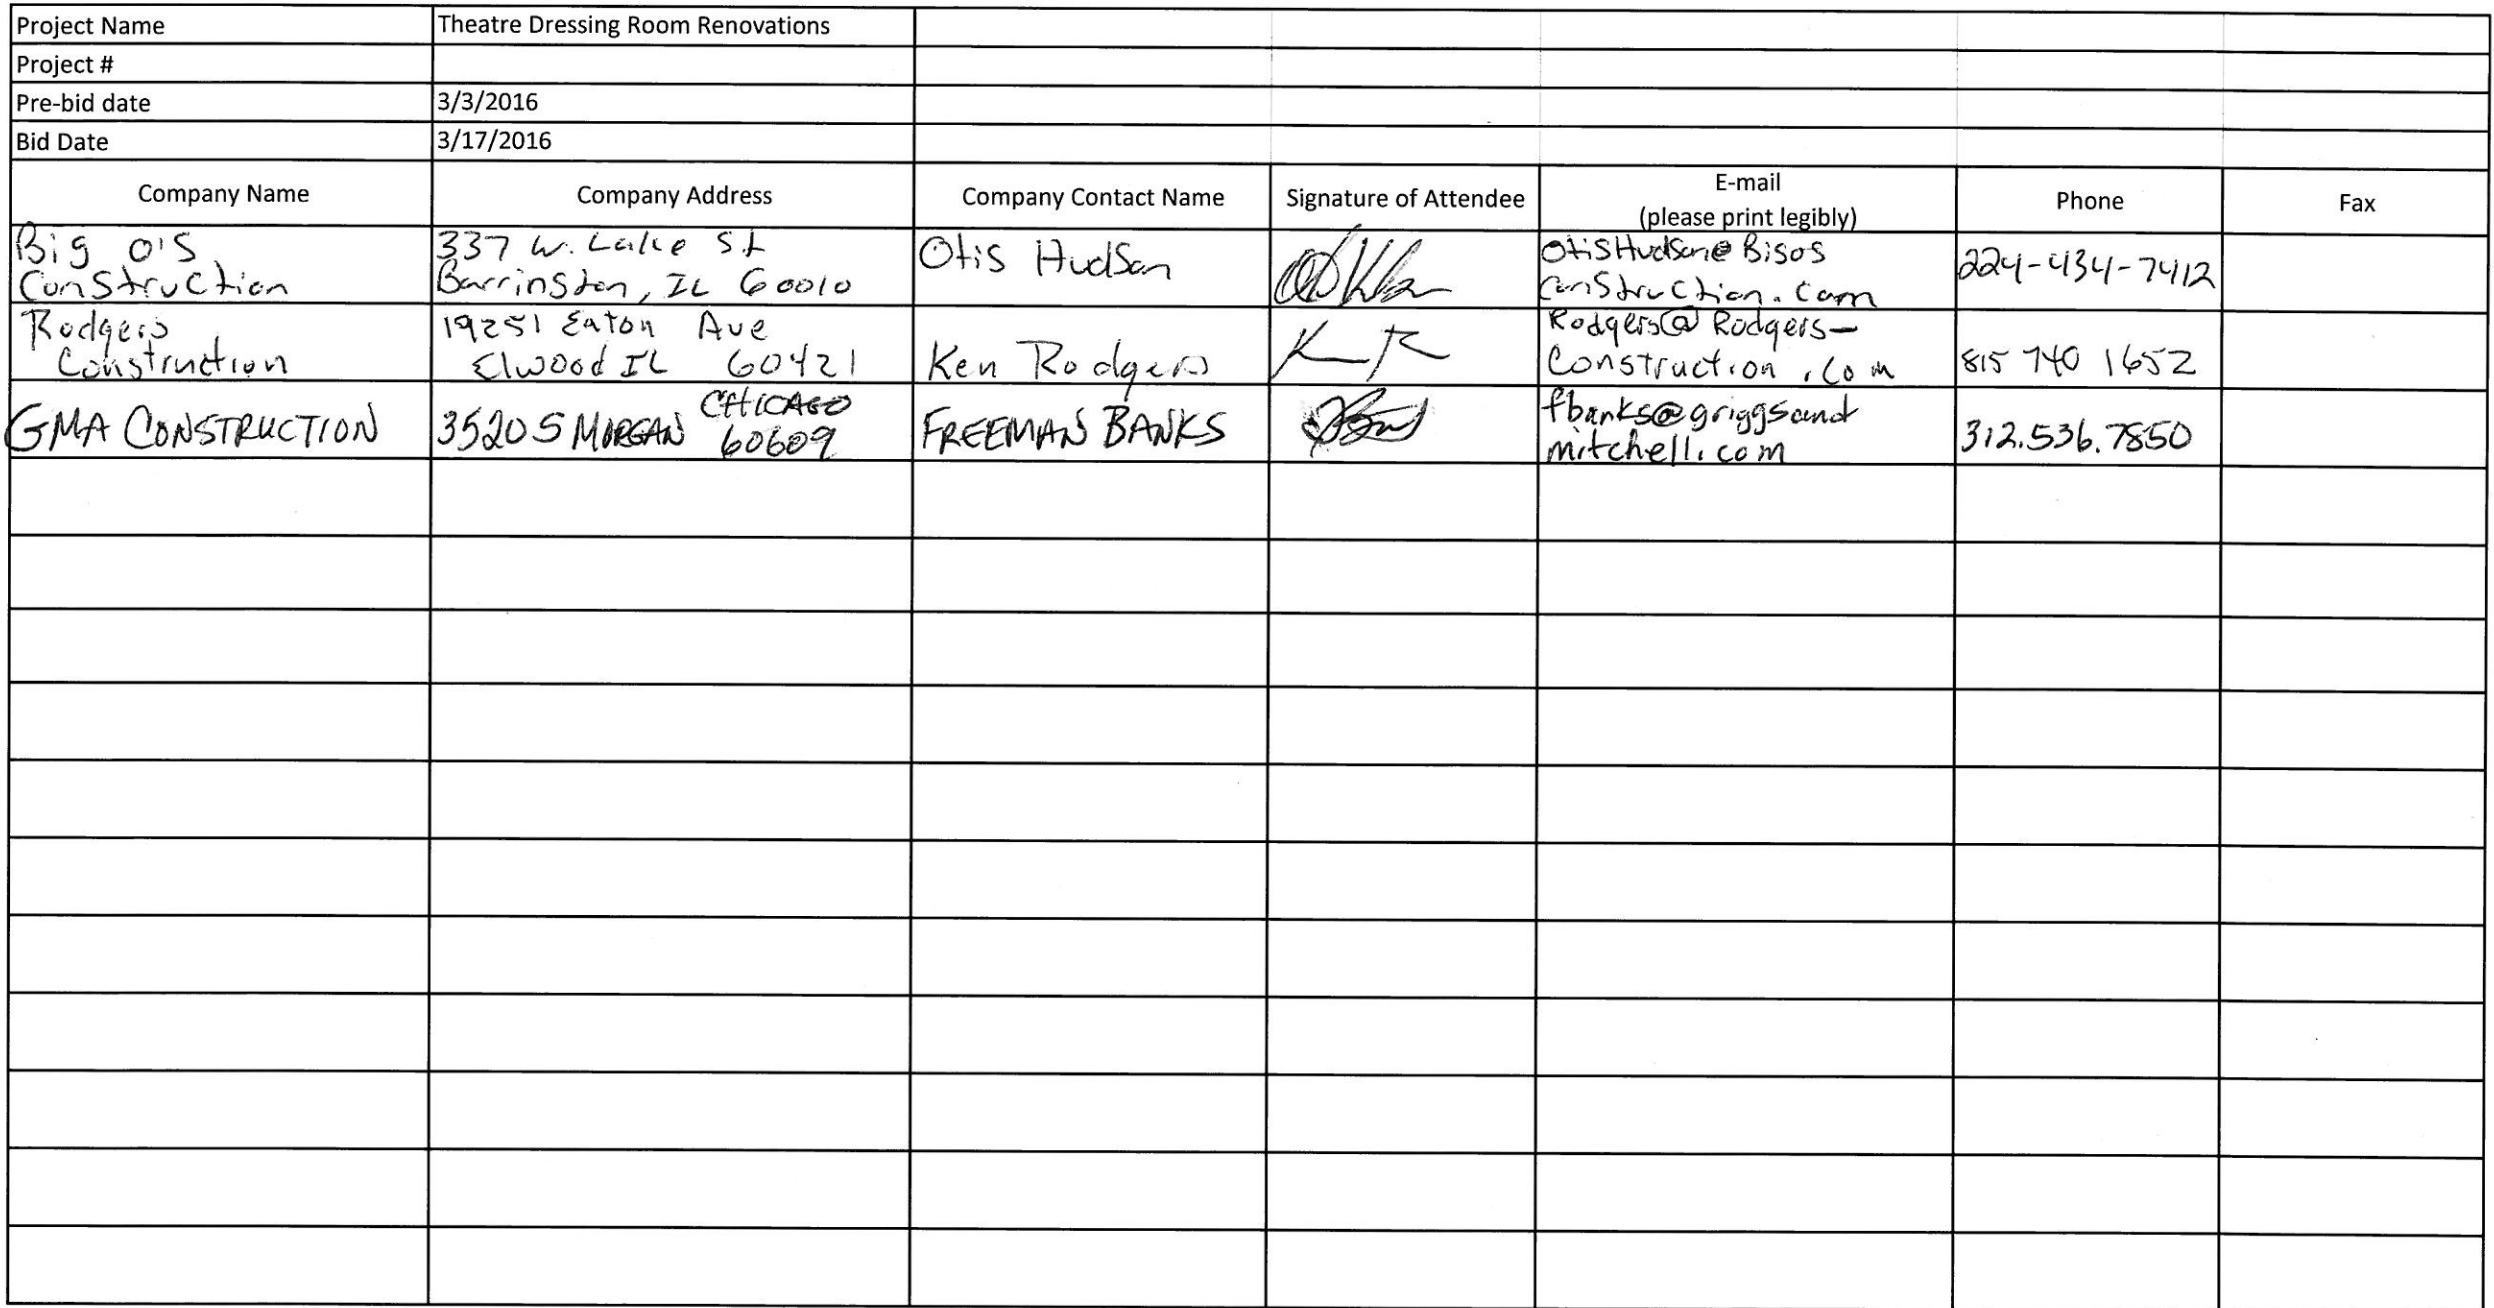 Project Name Theatre Dressing Room Renovations
Project #
Pre-bid date 3/3/2016
Bid Date 3/17/2016
Company Name Company Address Company Contact Name Signature of Attendee E-mail (please print legibly) Phone Fax
Big O'S
Construction
337 W. Lake St
Barrington, IL 60010
Otis Hudson
OtisHudson@Bigos
Construction.com
224-434-7412
Rodgers
Construction
19251 Eaton Ave
Elwood IL 60421
Ken Rodgers
K R
Rodgers@Rodgers-
Construction.com
815 740 1652
GMA CONSTRUCTION
3520 S MORGAN CHICAGO
60609
FREEMAN BANKS
fbanks@griggsand
mitchell.com
312.536.7850